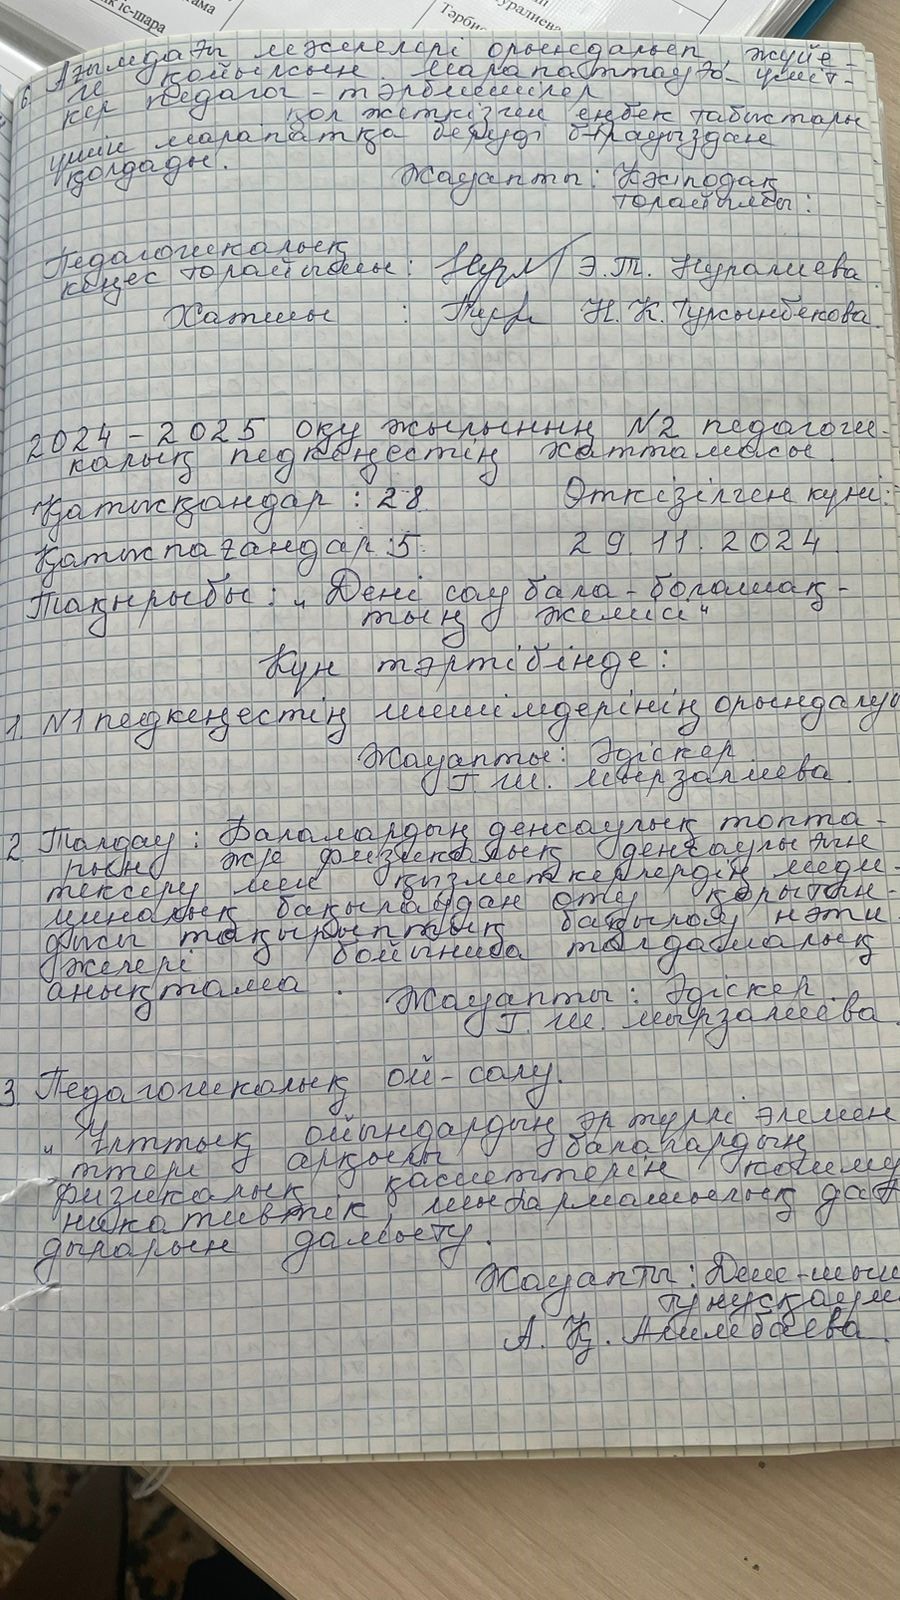 іс-шара
Тәрби
уралиева
6. Ағымдағы мәселелері орындалып, жүйе-
ге қойылсын. Марапаттауға үміт-
кер педагог-тәрбиешілер
қол жеткізген еңбек табыстары
үшін марапатқа беруді бірауыздан
қолдады.
Жауапты: Кәсіподақ
төрайымы:
Педагогикалық
кеңес төрайымы: Э. Т. Нуралиева.
Хатшы : Н. К. Турсынбекова.
2024-2025 оқу жылының №2 педагоги-
калық педкеңестің хаттамасы.
Қатысқандар: 28 Өткізілген күні:
Қатыспағандар: 5. 29. 11. 2024
Тақырыбы: „Дені сау бала - болашақ-
тың жемісі"
Күн тәртібінде:
1. №1 педкеңестің шешімдерінің орындалуы
Жауапты: Әдіскер
Г. Ш. Мырзалиева.
2 Талдау: Балалардың денсаулық топта-
рын және физикалық денсаулығын
тексеру мен қызметкерлердің меди-
циналық бақылаудан өту қорытын-
дысы тақырыптық бақылау нәти
желері бойынша талдамалық
анықтама. Жауапты: Әдіскер.
Г. Ш. Мырзалиева.
3. Педагогикалық ой-салу.
„Ұлттық ойындардың әр түрлі элемен
ттері арқылы балалардың
физикалық қасиеттерін комму
никативтік, шығармашылық дағ
дыларын дамыту.
Жауапты: Дене-шын
нұсқаушы
А. Қ. Алимбаева.